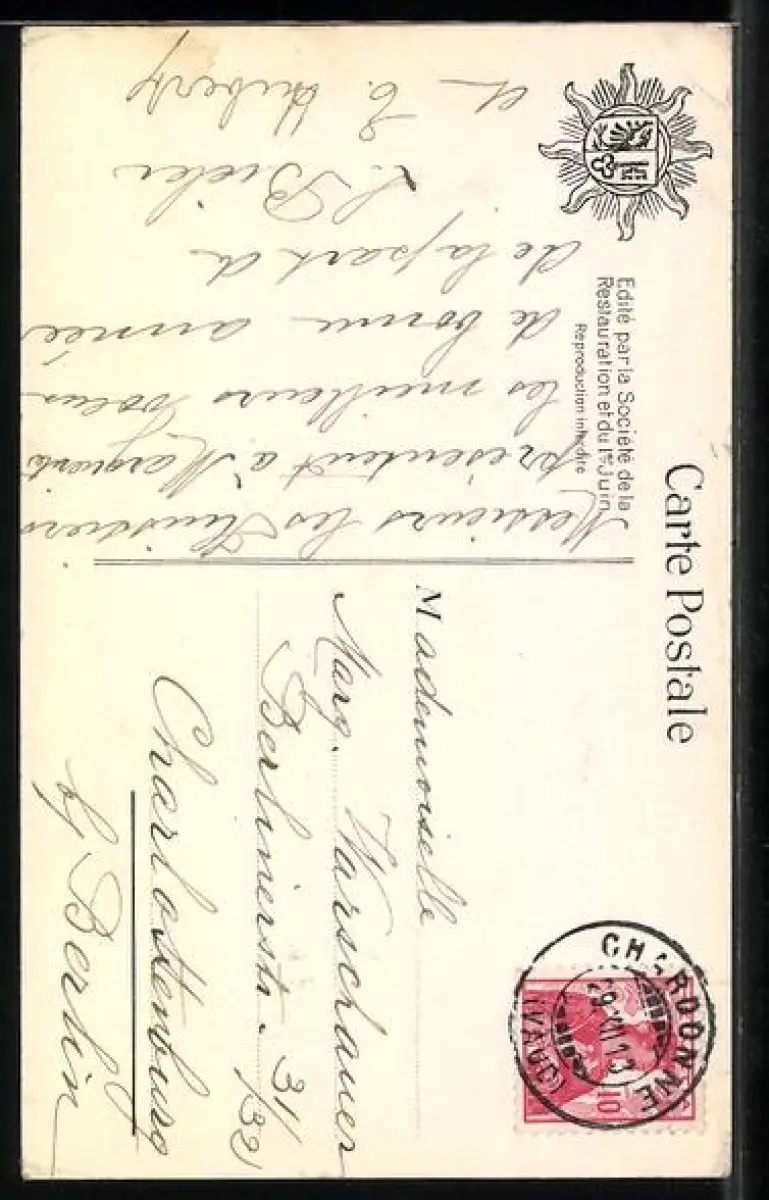 Carte Postale
Edité par la Société de la
Restauration et du 1er Juin
Reproduction interdite
Messieurs les
présentent à
les meilleurs voeux
de bonne année
de la part d
et E. Hubert
Mademoiselle
Marg. Warschauer
Berlinerstr. 31/32
Charlottenburg
b/ Berlin
CHARDONNE
29 XII 13
(VAUD)
10